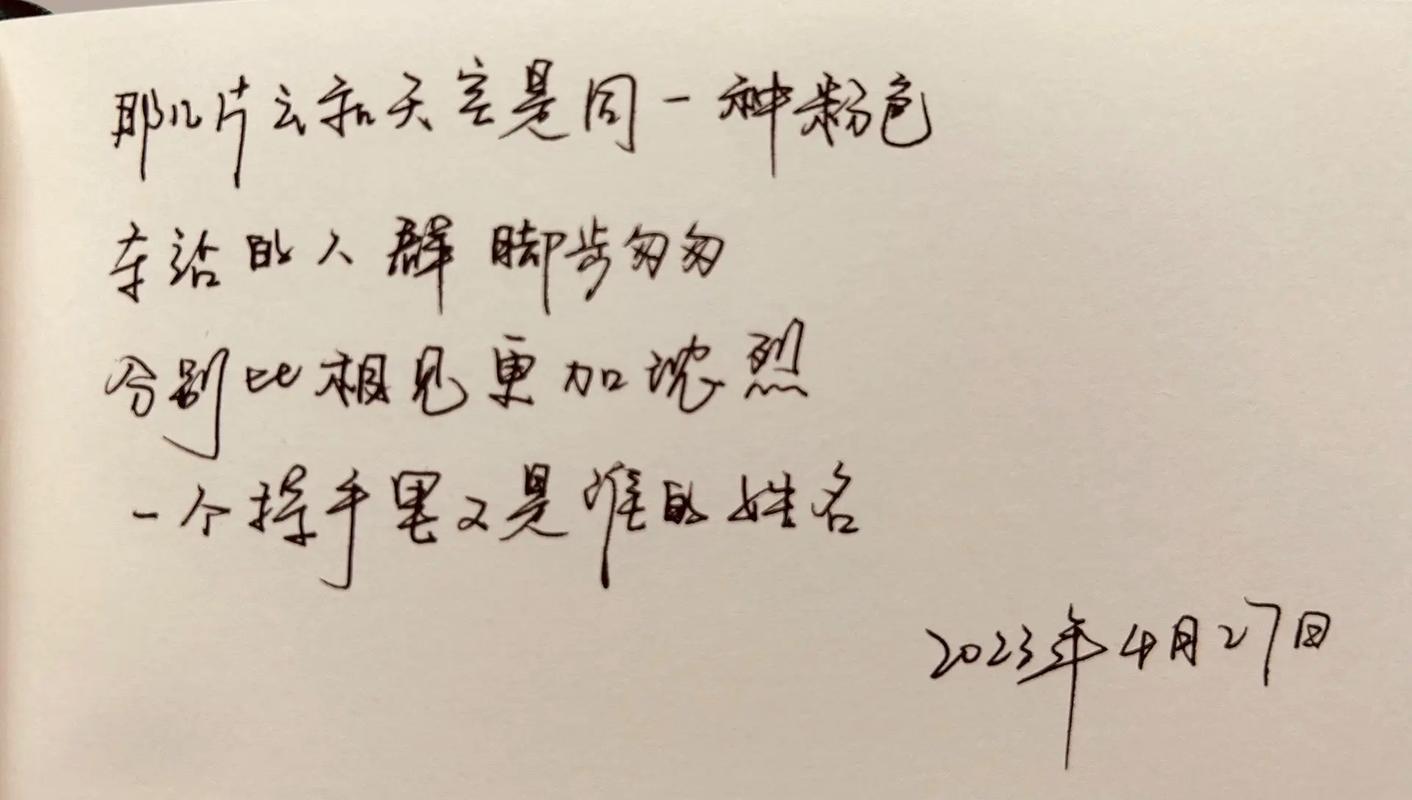 那几片云和天空是同一种粉色
车站的人群 脚步匆匆
分别比相见更加浓烈
一个挥手里又是谁的姓名
2023年4月27日